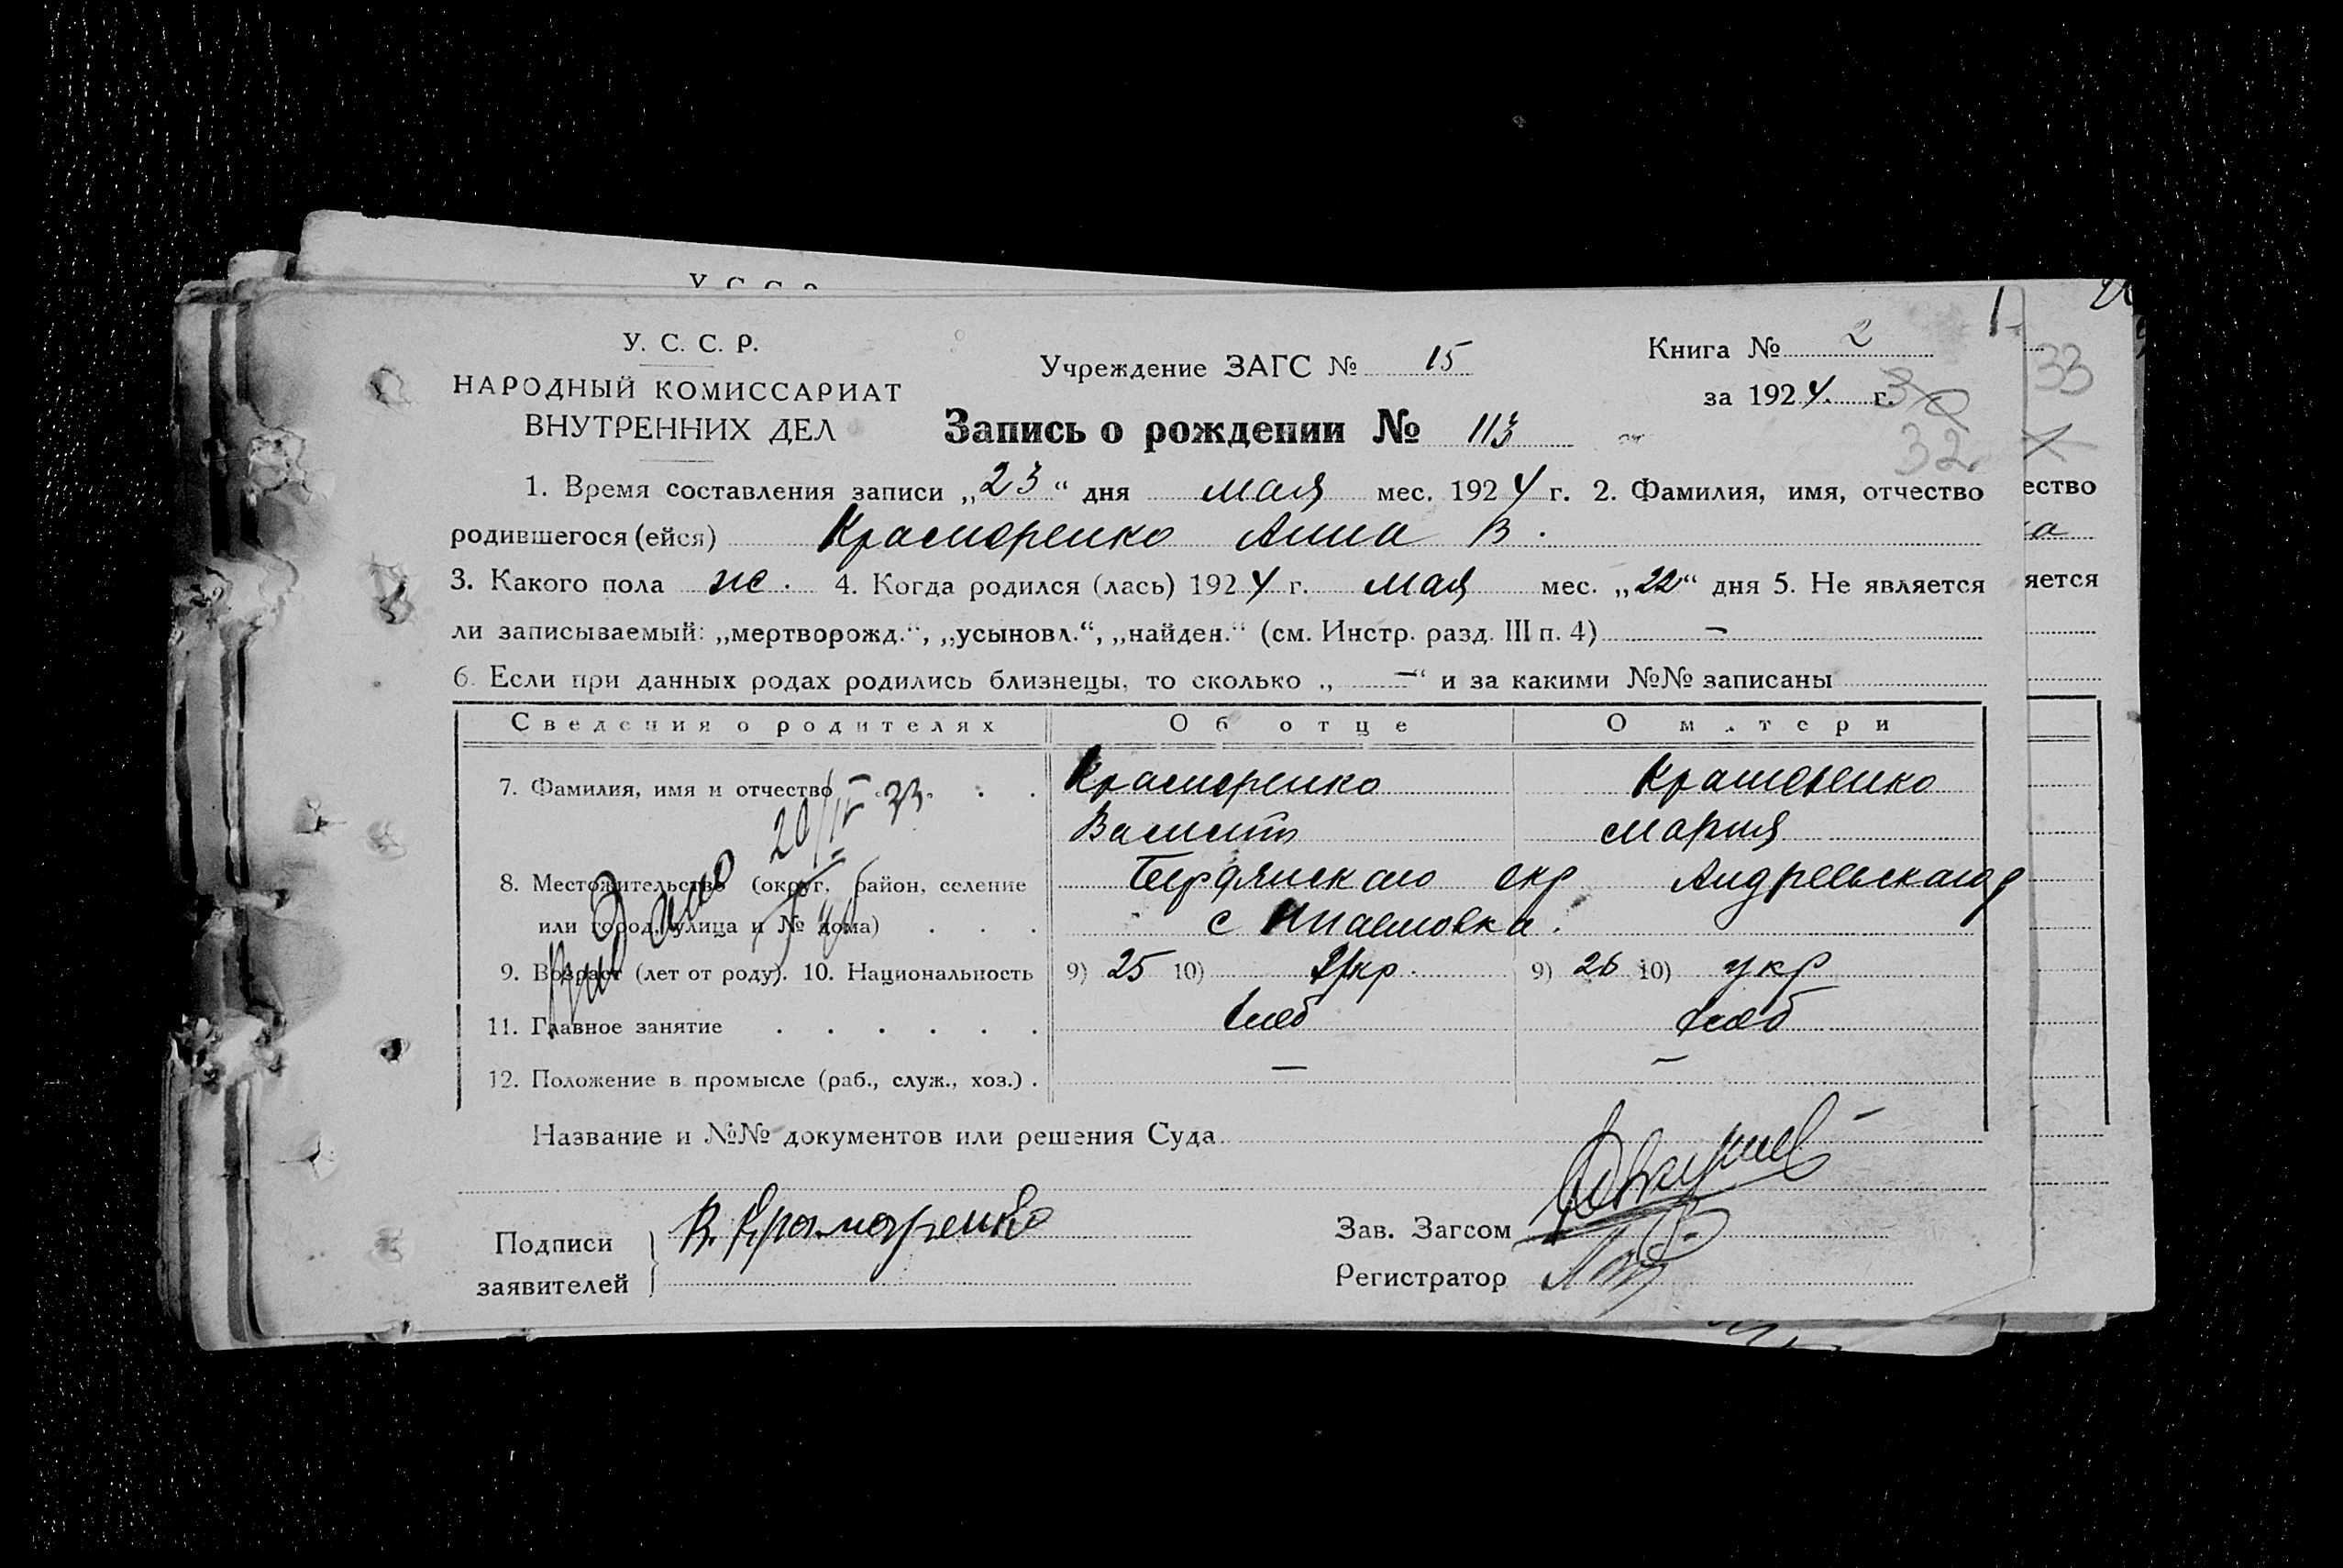 У. С. С. Р.
НАРОДНЫЙ КОМИССАРИАТ
ВНУТРЕННИХ ДЕЛ
Учреждение ЗАГС № 15
Книга № 2
за 1924 г.
32
33
Запись о рождении № 113
1. Время составления записи „23“ дня мая мес. 1924 г. 2. Фамилия, имя, отчество
родившегося (ейся) Краморенко Анна В.
3. Какого пола ж. 4. Когда родился (лась) 1924 г. мая мес. „22“ дня 5. Не является
ли записываемый: „мертворожд.“, „усыновл.“, „найден.“ (см. Инстр. разд. III п. 4) —
6. Если при данных родах родились близнецы, то сколько „—“ и за какими №№ записаны
Сведения о родителях Об отце О матери
7. Фамилия, имя и отчество Краморенко Краморенко
Мария
8. Местожительство (округ, район, селение Бердянского окр Андреевского р
или город, улица и № дома) с
9. Возраст (лет от роду). 10. Национальность 9) 25 10) Укр. 9) 26 10) укр
11. Главное занятие хлеб хлеб
12. Положение в промысле (раб., служ., хоз.) — —
Название и №№ документов или решения Суда
Подписи
заявителей
В. Краморенко
Зав. Загсом
Регистратор